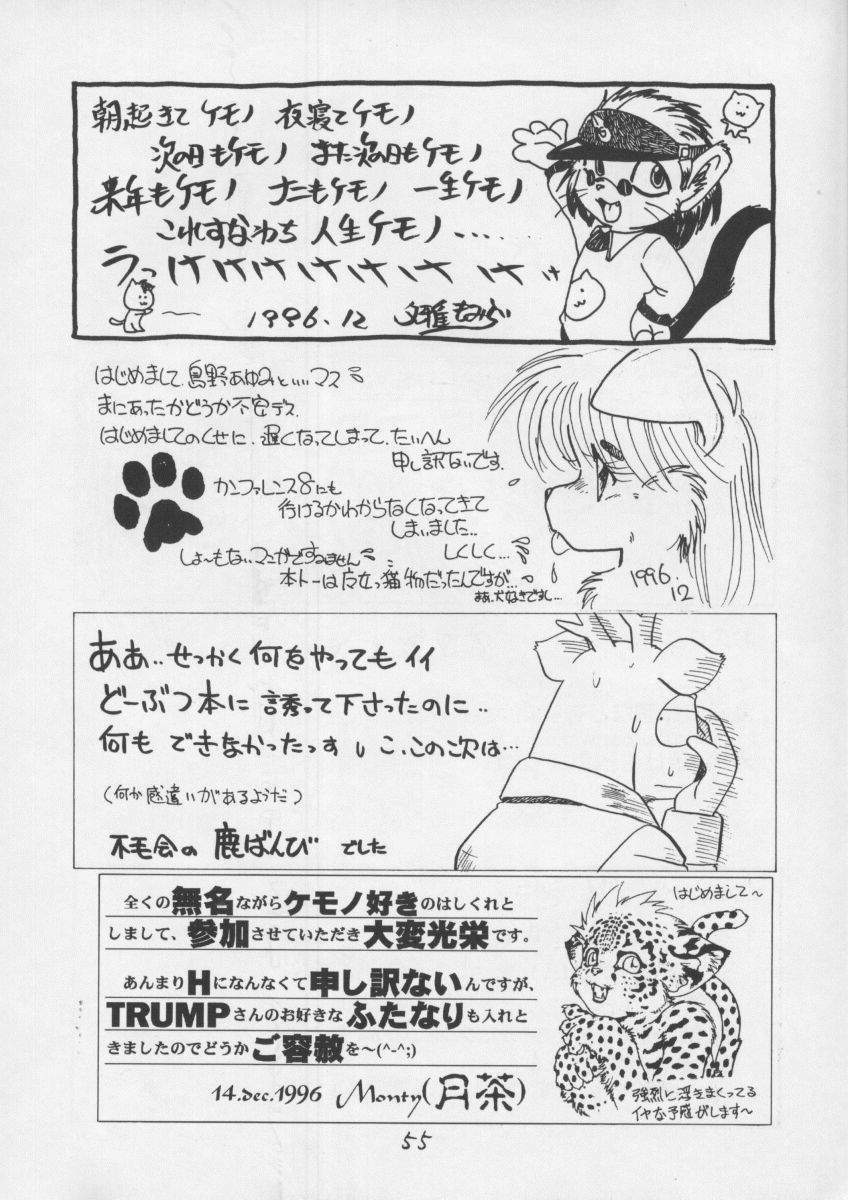 朝起きてケモノ 夜寝てケモノ
次の日もケモノ また次の日もケモノ
来年もケモノ ナニもケモノ 一生ケモノ
これすなわち 人生ケモノ・・・・・
ラっけけけけけけけ
1996.12
はじめまして、鳥野あゆみといいマス
まにあったかどうか不安デス.
はじめましてのくせに、遅くなってしまって、たいへん
申し訳ないです.
カンファレンス8にも
行けるかわからなくなってきて
しまいました..
しくしく…
しょーもないマンガですみません
本トーは女の猫物だったんですが…
まあ、犬なきですし…
1996.
12
ああ..せっかく何をやってもイイ
どーぶつ本に誘って下さったのに..
何もできなかったっすぃ こ、この次は…
(何か感違いがあるようだ)
不毛会の 鹿ばんび でした
全くの無名ながらケモノ好きのはしくれと
しまして、参加させていただき大変光栄です。
あんまりHになんなくて申し訳ないんですが、
TRUMPさんのお好きなふたなりも入れと
きましたのでどうかご容赦を〜(^-^;)
14.dec.1996 Monty(月茶)
はじめまして〜
強烈に浮きまくってる
イヤな予感がします〜
55